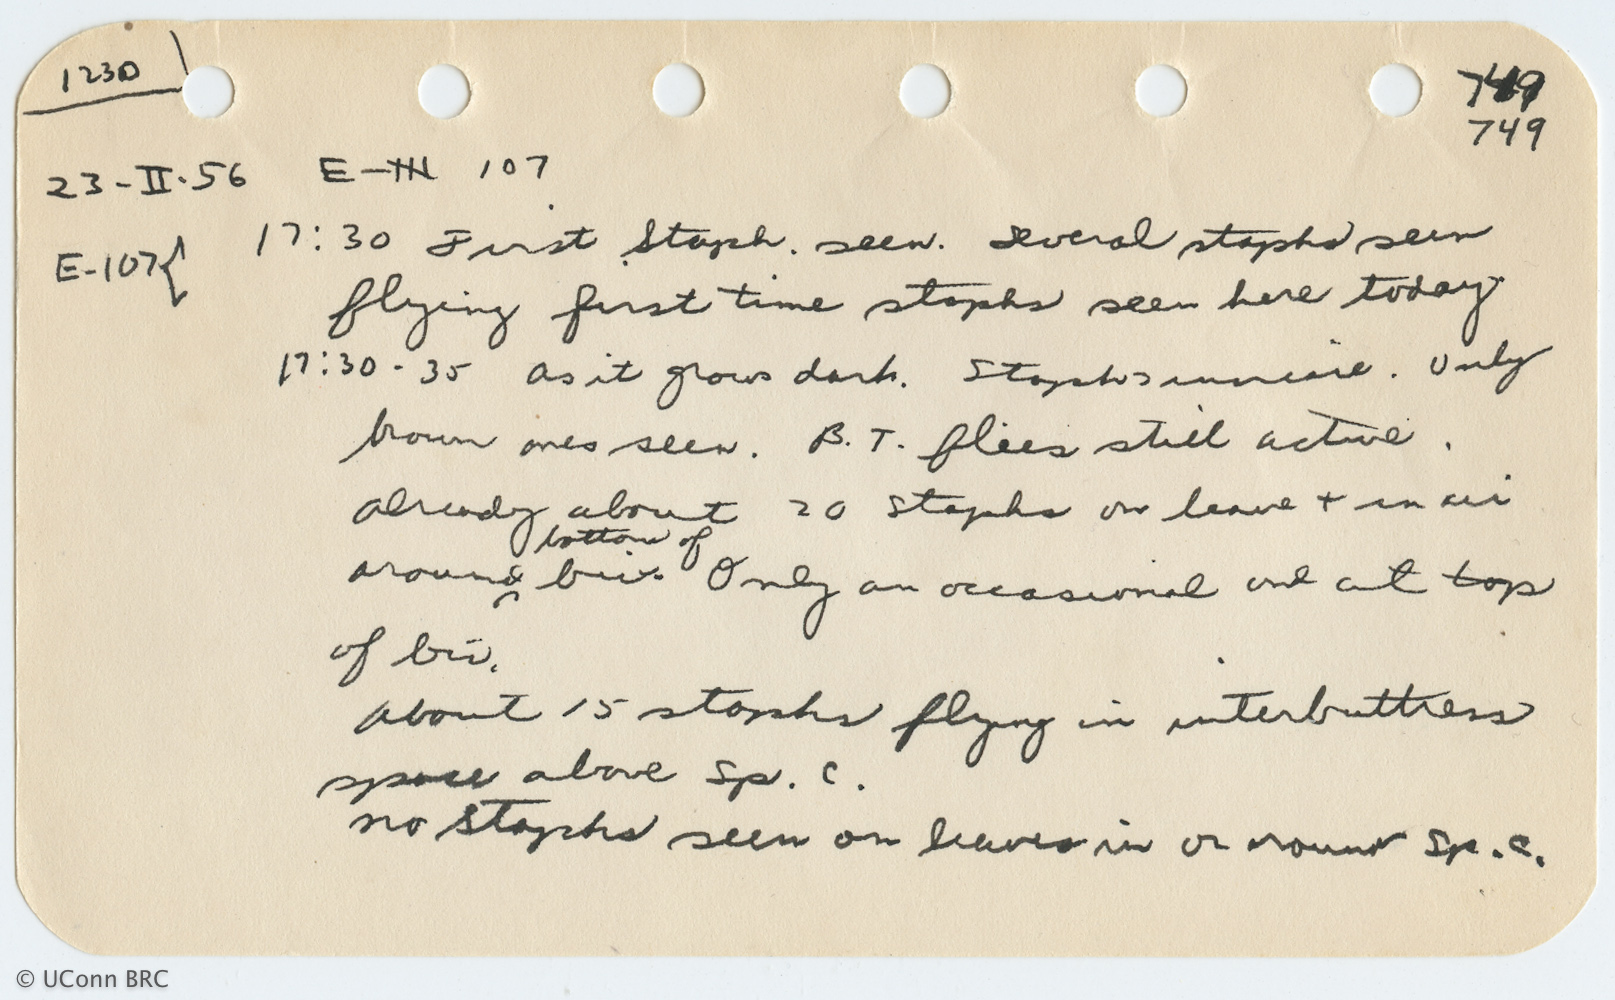 1230
749
749
23-II-56 E-III 107
E-107{ 17:30 First Staph. seen. Several staphs seen
flying first time staphs seen here today
17:30-35 As it grows dark. Staphs increase. Only
brown ones seen. B.T. flies still active.
Already about 20 Staphs on leave + in air
bottom of
around biv. Only an occasional one at top
of biv.
About 15 staphs flying in interbuttress
space above Sp. C.
No Staphs seen on leaves in or around Sp. C.
© UConn BRC